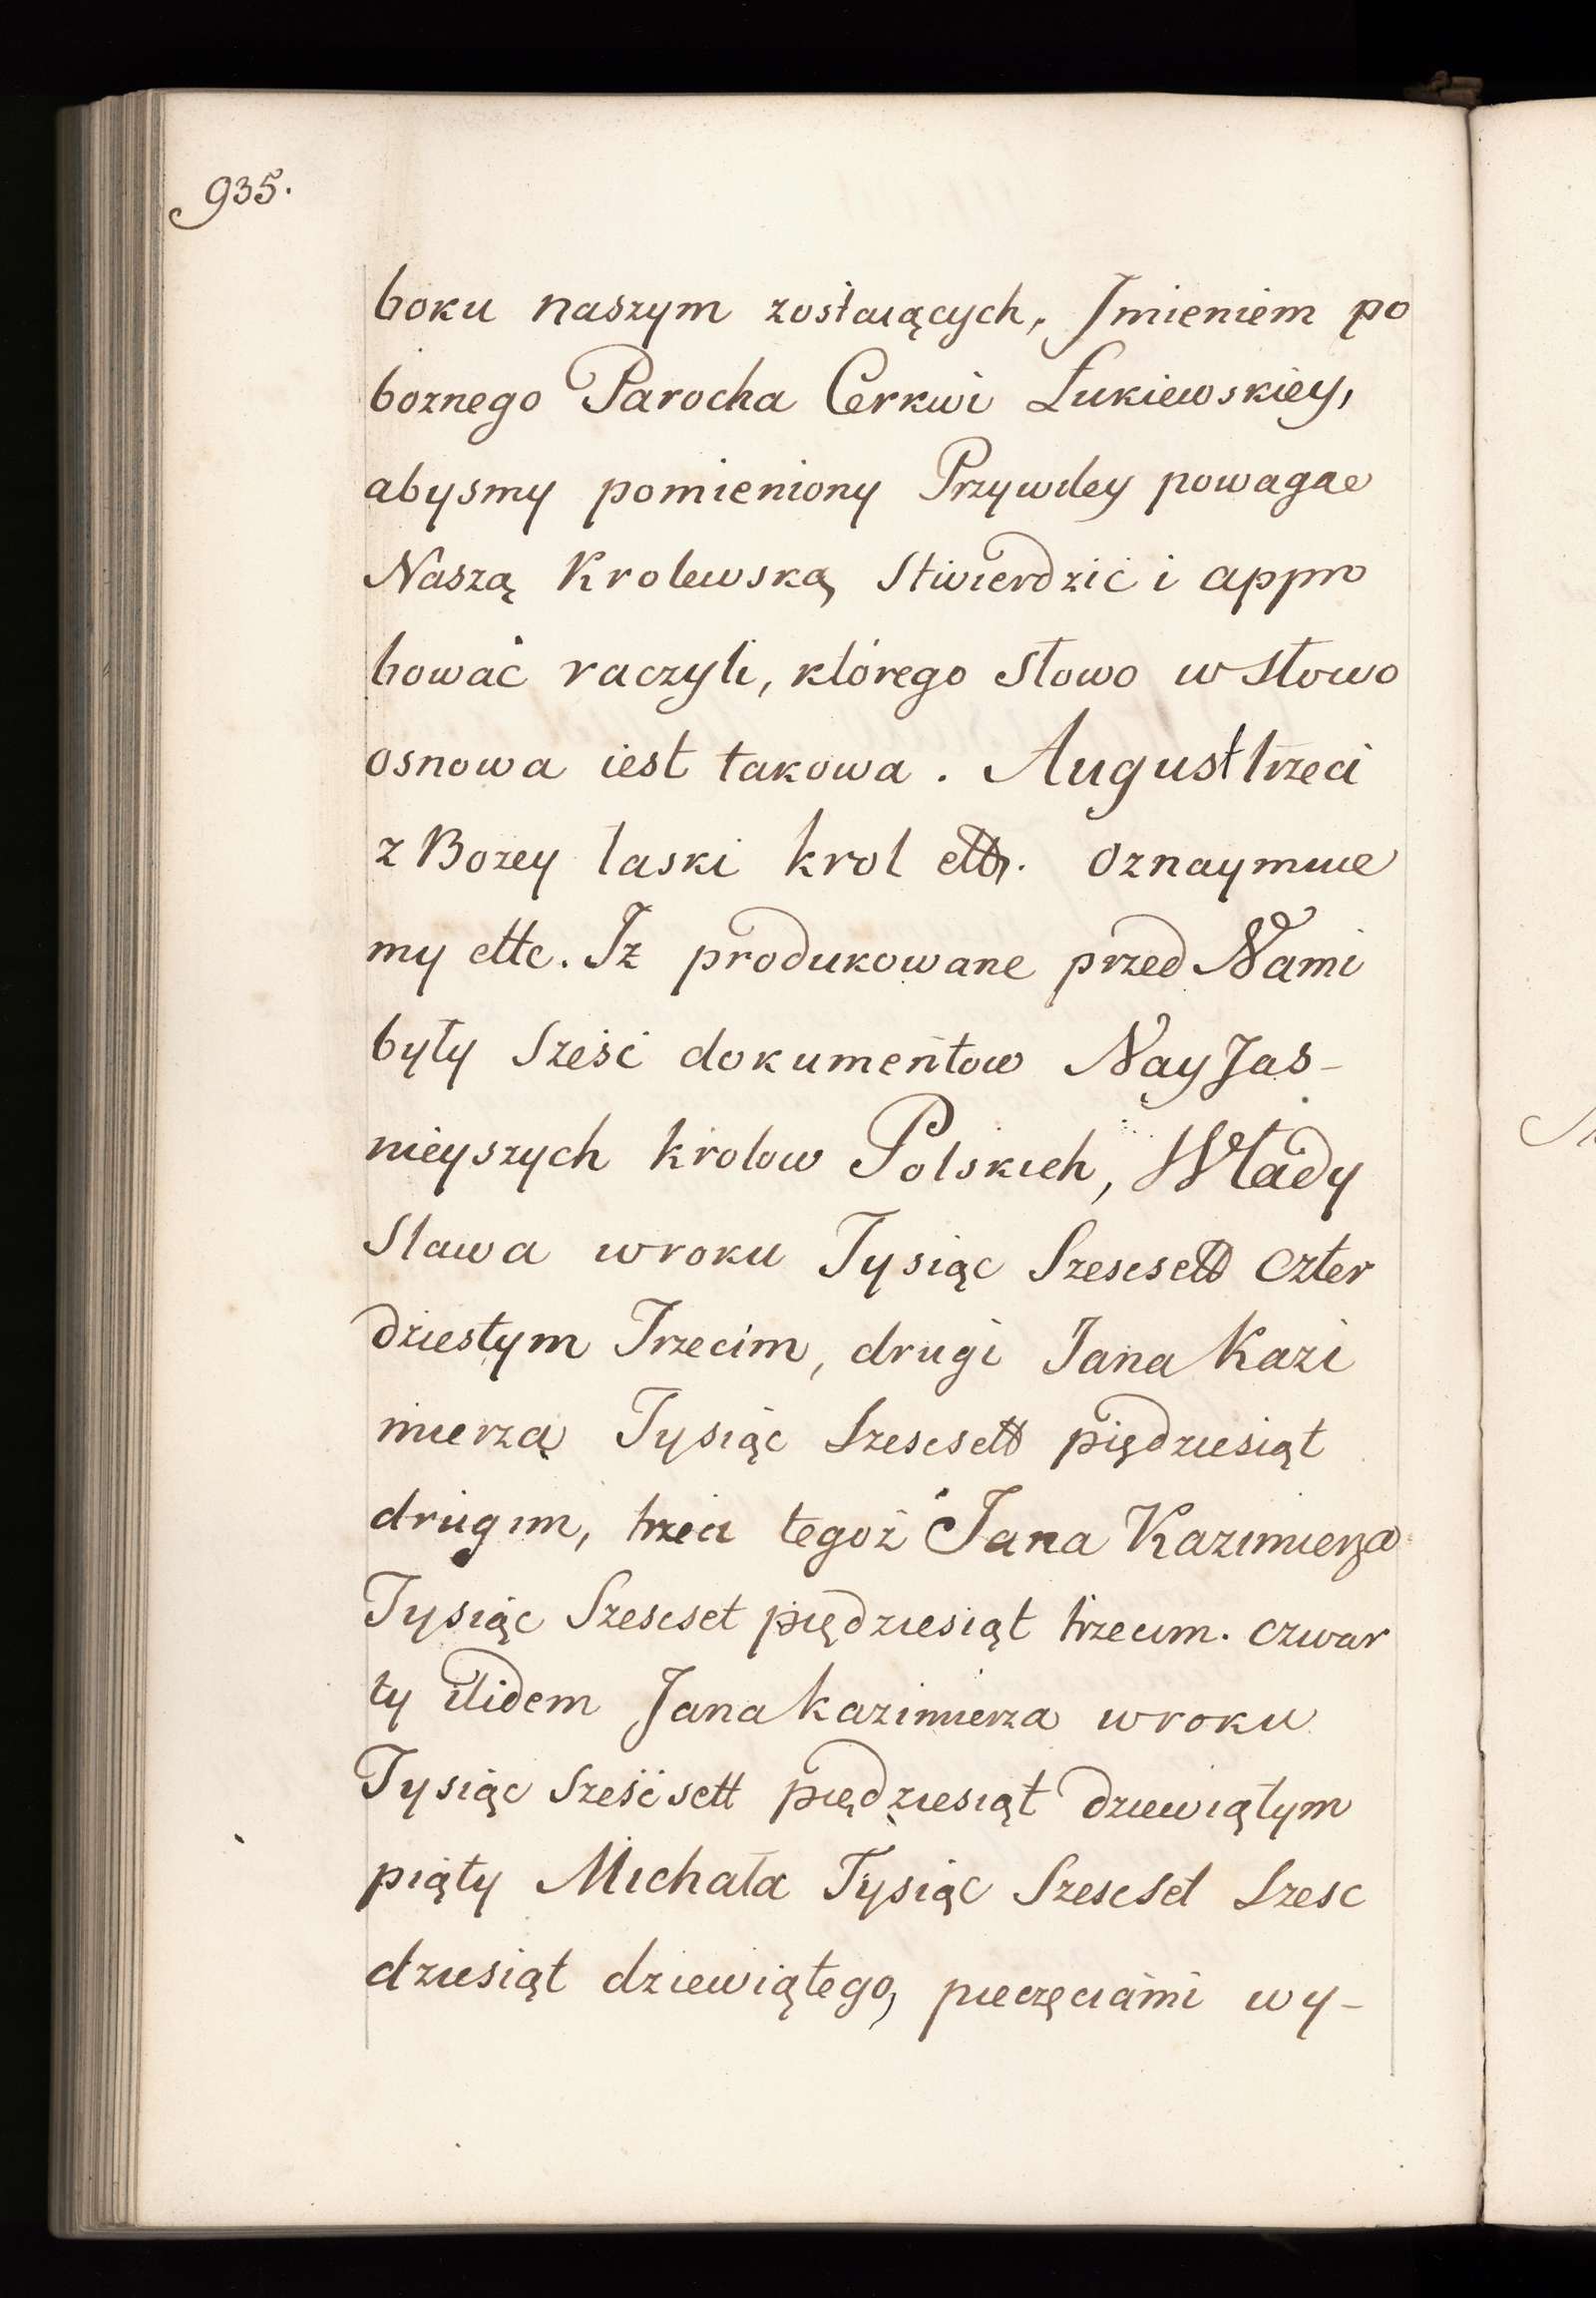 935.
boku naszym zostaiących, Jmieniem po
boznego Parocha Cerkwi Łukiewskiey,
abysmy pomieniony Przywiley powagae
Naszą Krolewską Stwierdzić i appro
bować raczyli, którego Słowo w Słowo
osnowa iest takowa. August trzeci
z Bozey laski krol ettc. oznaymuie
my ettc. Jz produkowane przed Nami
były Sześć dokumentow Nay Jas-
nieyszych krolow Polskich, Włady
Slawa w roku Tysiąc Szescsett czter
dziestym Trzecim, drugi Jana Kazi
mierza Tysiąc Szescsett piędziesiąt
drugim, trzeci tegoż Jana Kazimierza
Tysiąc Szescset piędziesiąt trzecim. czwar
ty itidem Jana kazimierza w roku
Tysiąc Sześćsett piędziesiąt dziewiątym
piąty Michała Tysiąc Szescset Szesc
dziesiąt dziewiątego, pieczęciami wy-